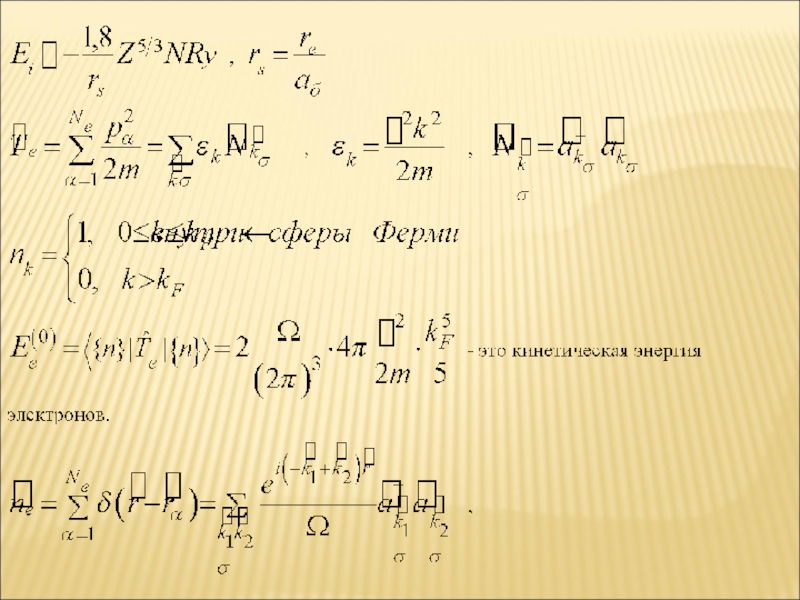 E_i □ −1,8/r_s Z^{5/3} N Ry , r_s = r_e/a_б
T̂_e = Σ_{α=1}^{N_e} p_α^2/2m = Σ_{kσ} ε_k N̂_{kσ} , ε_k = □^2 k^2/2m , N̂_{kσ} = a^+_{kσ} a_{kσ}
n_k = { 1, 0≤k≤k_F ← внутри сферы Ферми
0, k>k_F
E_e^{(0)} = ⟨{n}|T̂_e|{n}⟩ = 2 Ω/(2π)^3 ·4π □^2/2m · k_F^5/5 - это кинетическая энергия
электронов.
n_e = Σ_{α=1}^{N_e} δ(r−r_α) = Σ_{k_1k_2σ} e^{i(−k_1+k_2)r}/Ω a^+_{k_1σ} a_{k_2σ} ,